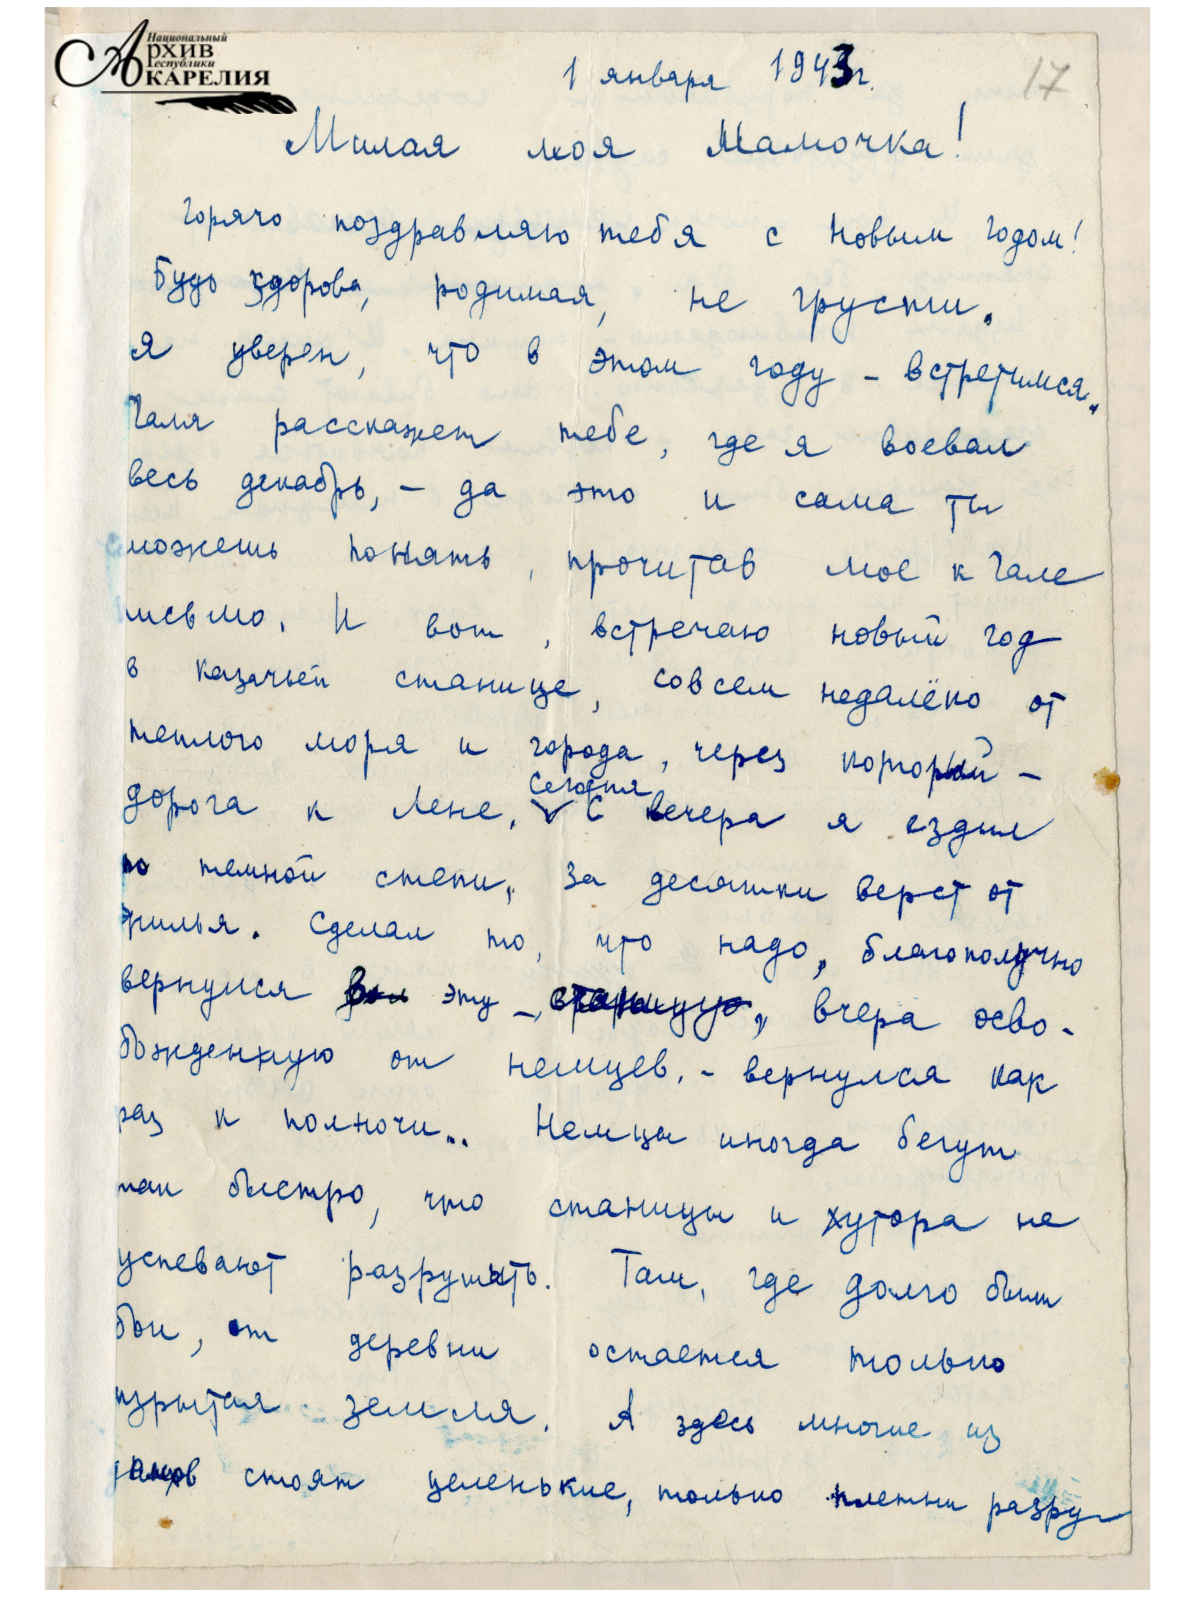 Национальный
Архив
Республики
Карелия
1 января 1943 г.
17
Милая моя Мамочка!
Горячо поздравляю тебя с Новым Годом!
Будь здорова, родимая, не грусти.
Я уверен, что в этом году – встретимся.
Галя расскажет тебе, где я воевал
весь декабрь, – да это и сама ты
можешь понять, прочитав мое к Гале
письмо. И вот, встречаю новый год
в казачьей станице, совсем недалёко от
теплого моря и города, через который –
дорога к Лене. Сегодня с вечера я ездил
по темной степи, за десятки верст от
жилья. Сделал то, что надо, благополучно
вернулся в эту – станицу, вчера осво-
божденную от немцев, – вернулся как
раз к полночи.. Немцы иногда бегут
так быстро, что станицы и хутора не
успевают разрушать. Там, где долго были
бои, от деревни остается только
изрытая земля. А здесь многие из
домов стоят целенькие, только плетни разру-